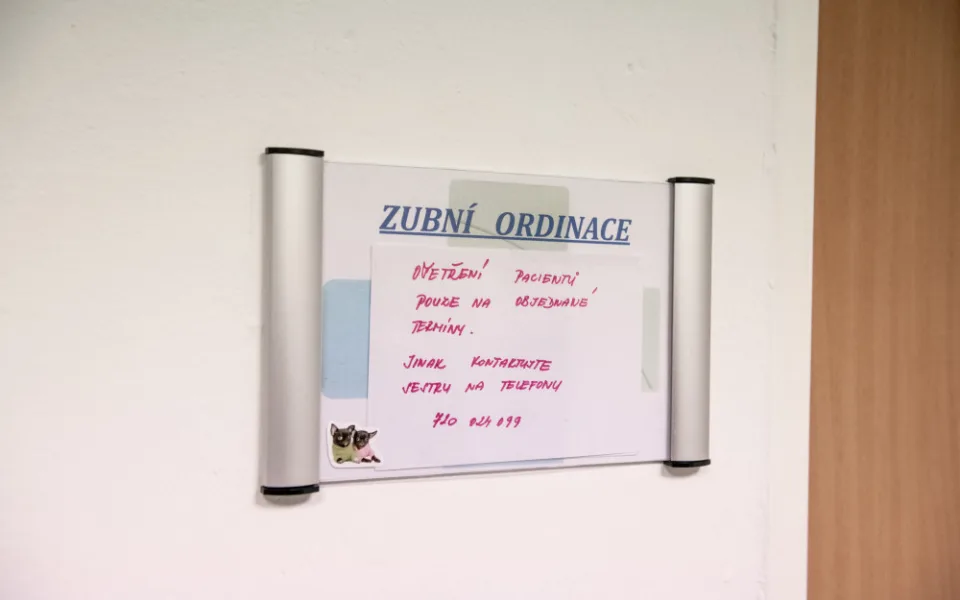 ZUBNÍ ORDINACE
OŠETŘENÍ PACIENTŮ
POUZE NA OBJEDNANÉ
TERMÍNY.
JINAK KONTAKTUJTE
SESTRU NA TELEFONU
720 024 099